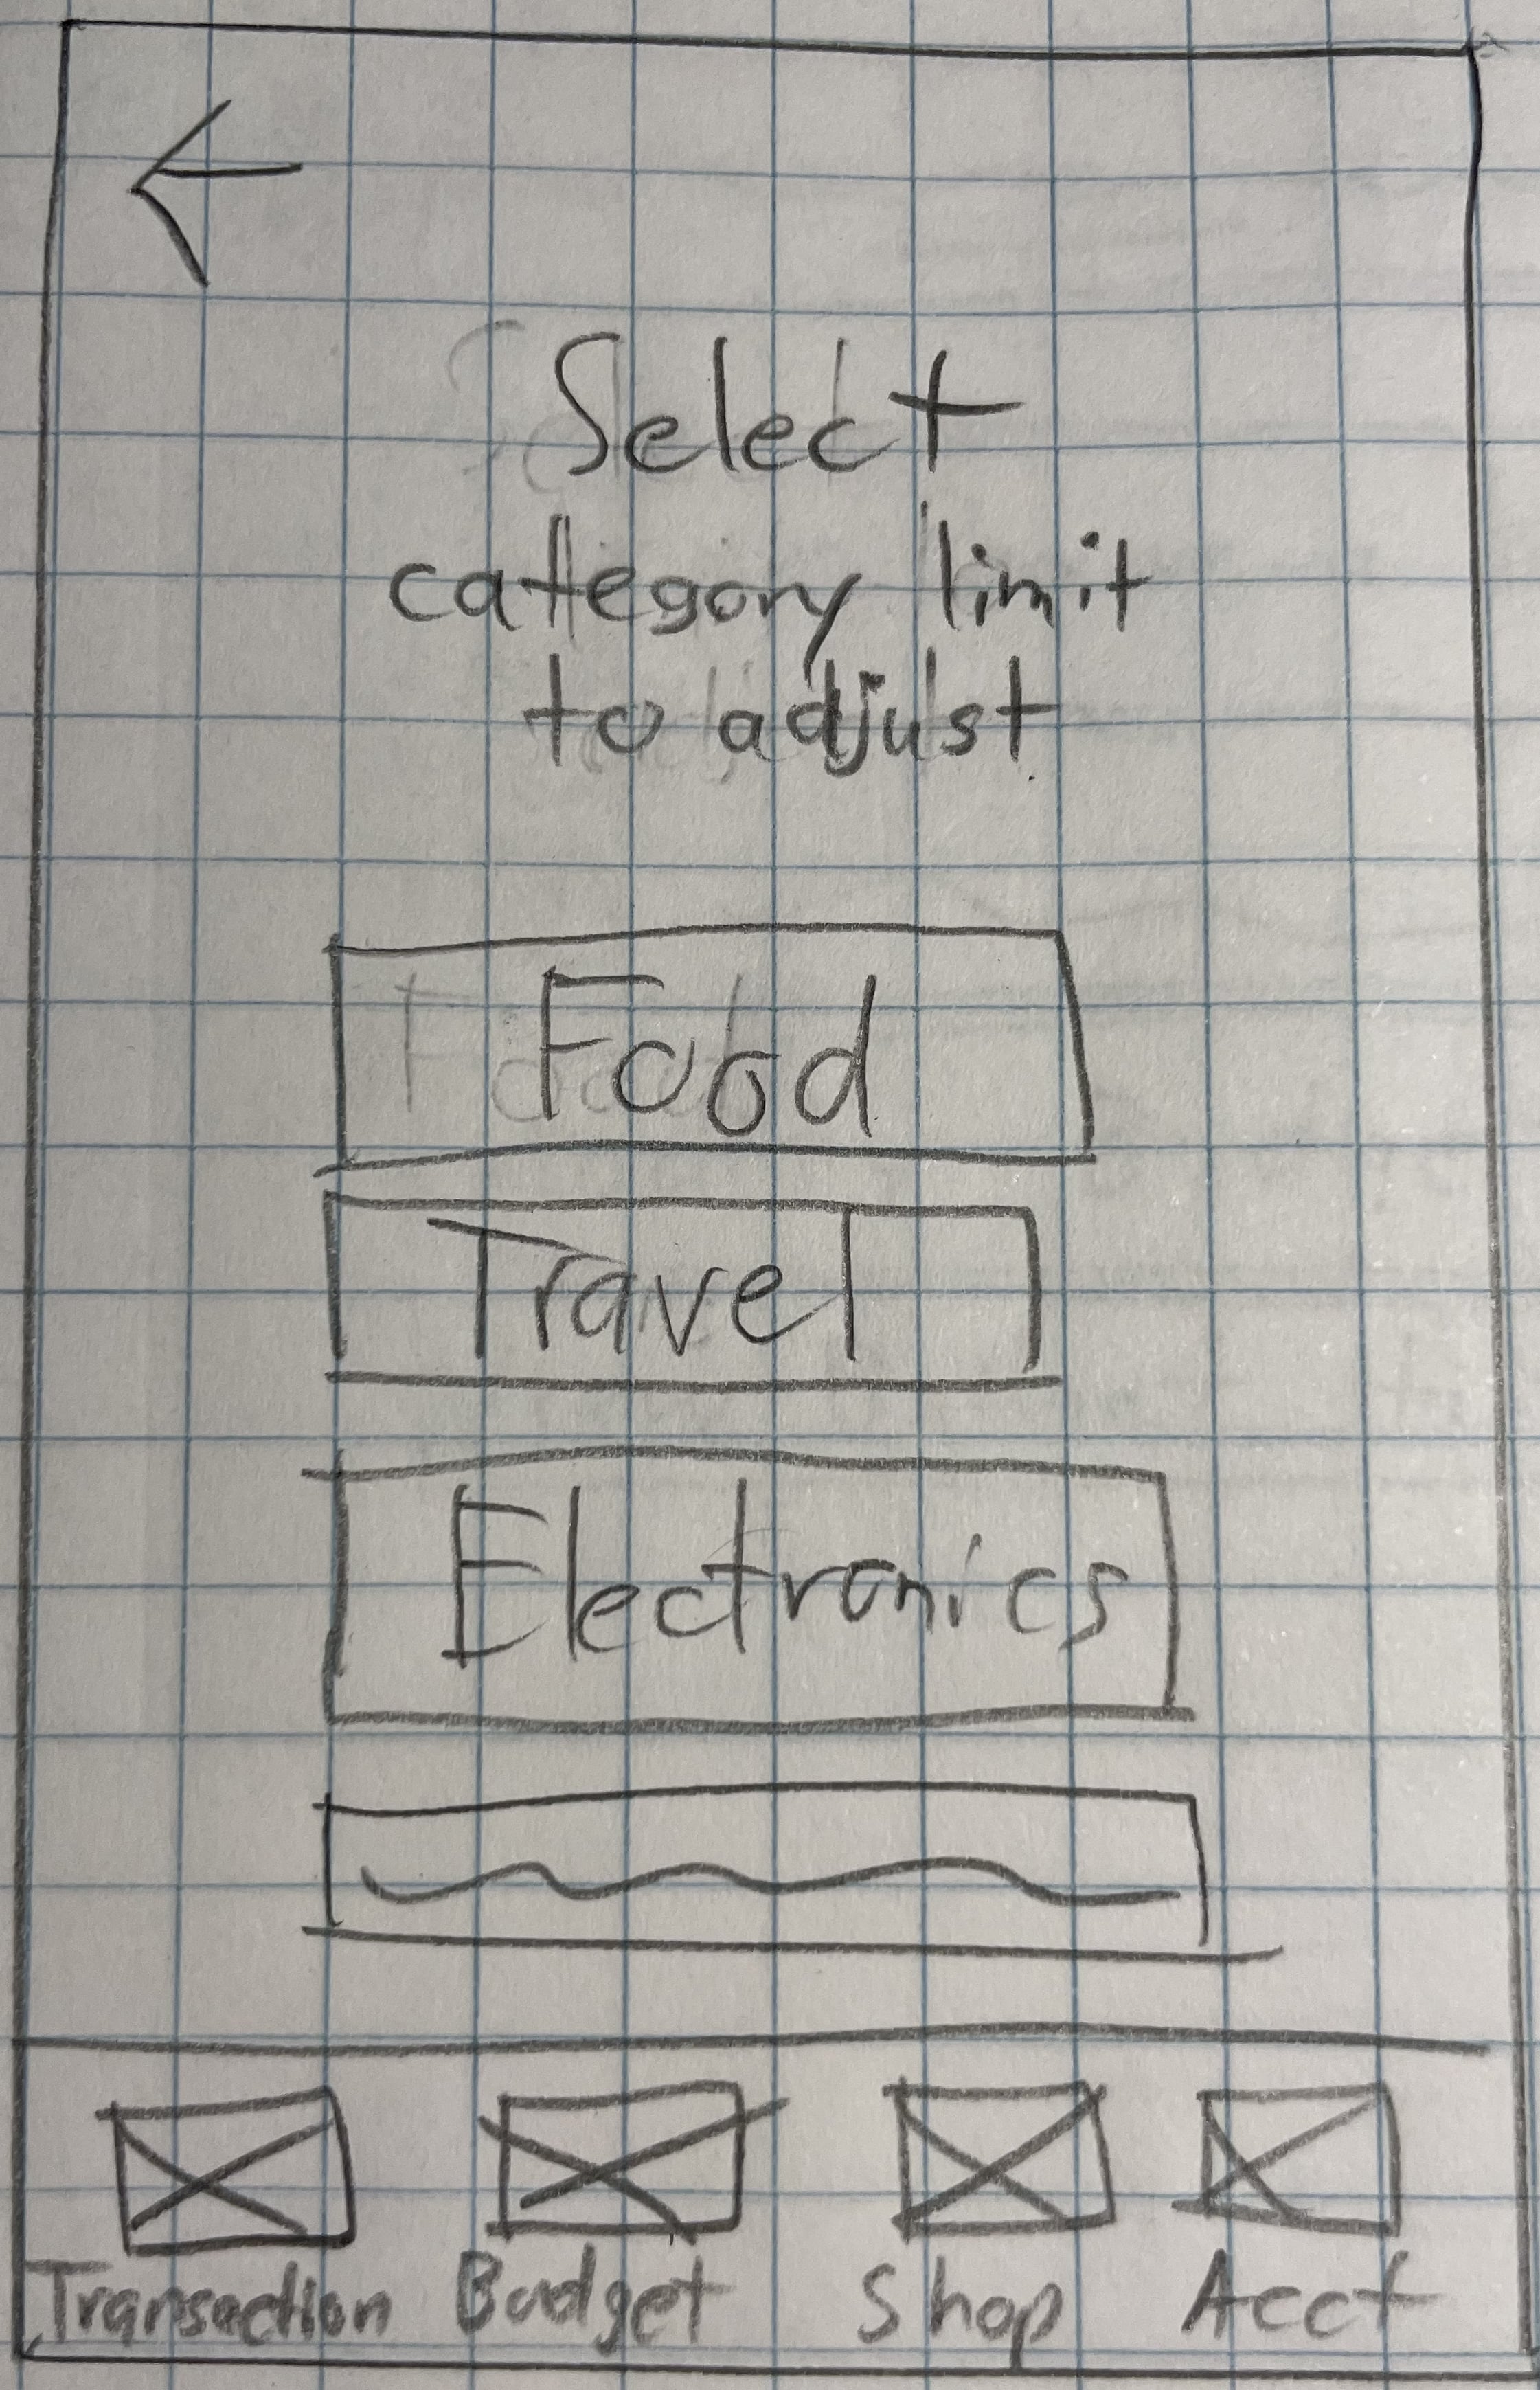 Select
category limit
to adjust
Food
Travel
Electronics
Transaction Budget Shop Acct